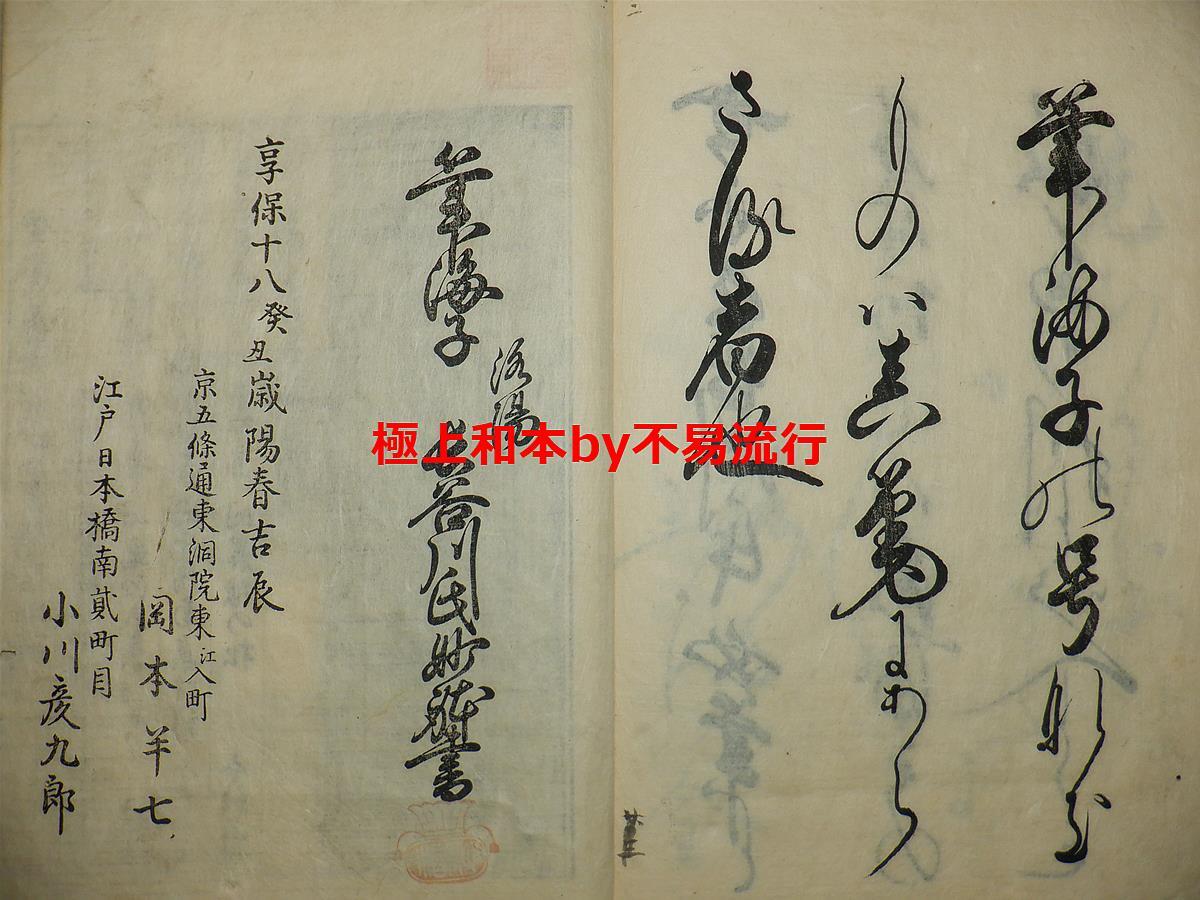 筆海子の号なき
ものハ真筆にあら
さる者也
洛陽
筆海子 長谷川氏妙躰書
享保十八癸丑歳陽春吉辰
京五條通東洞院東江入町
岡本半七
江戸日本橋南貳町目
小川彦九郎
極上和本by不易流行